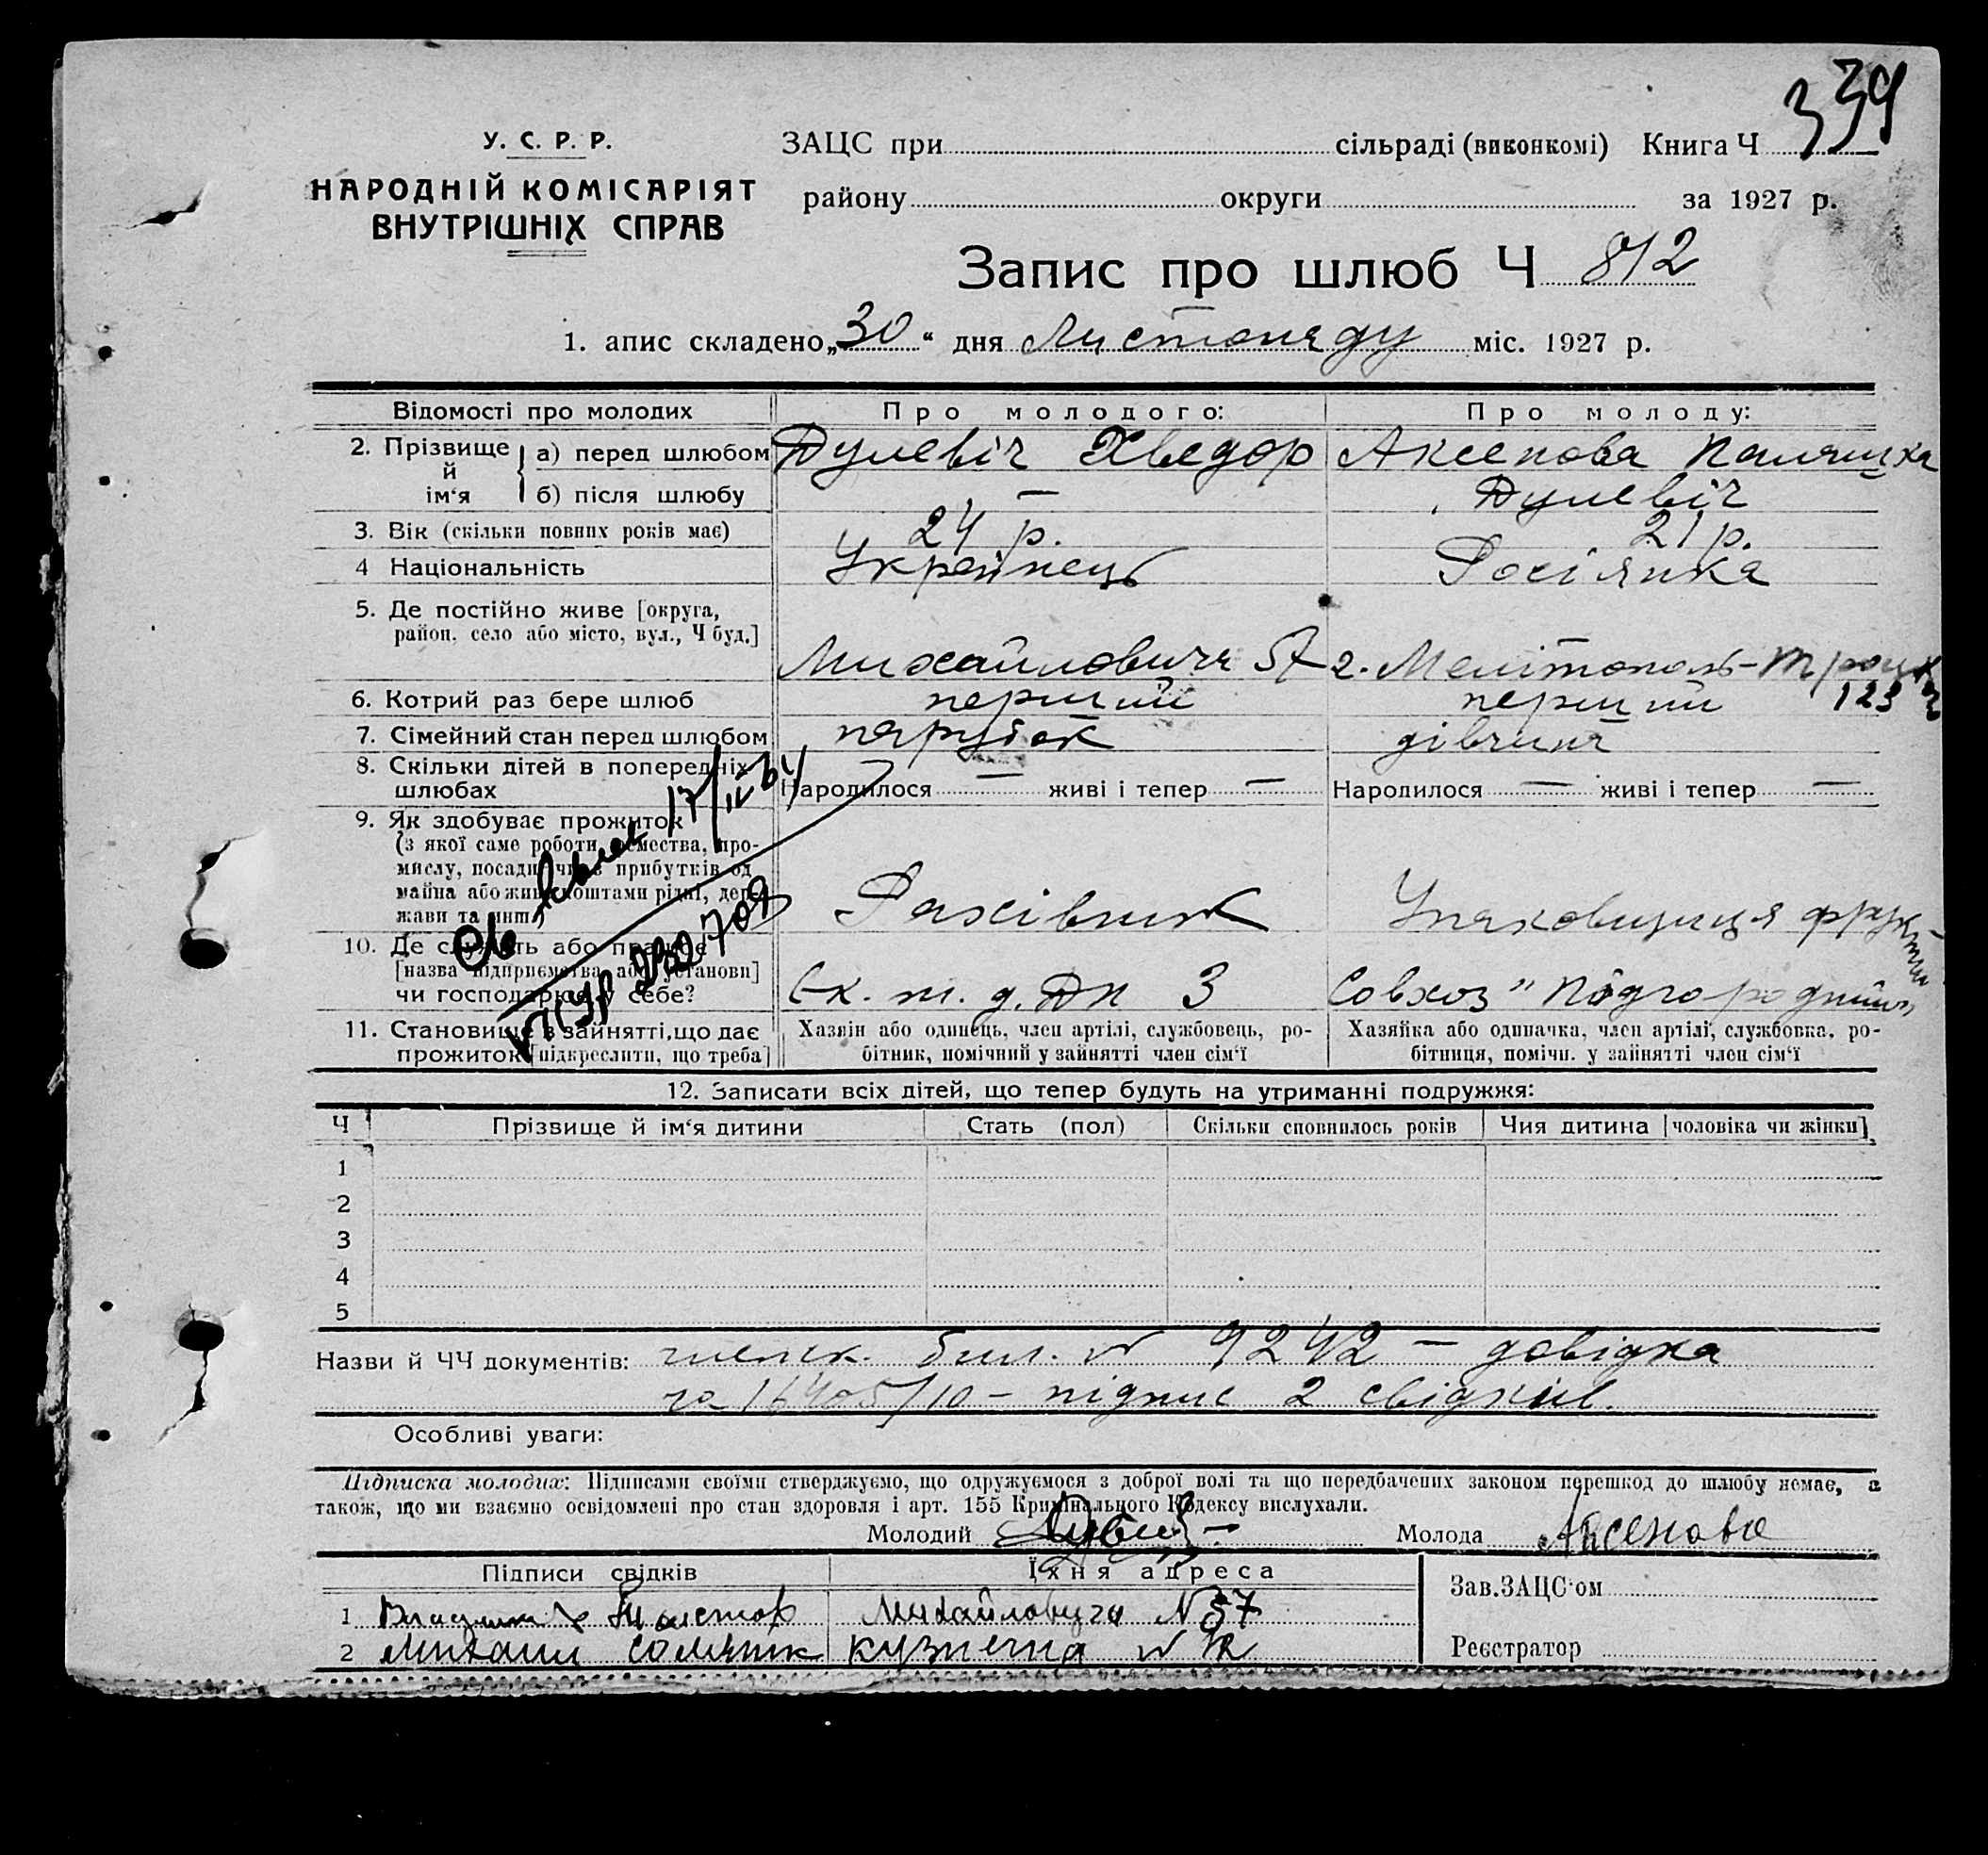 339
У. С. Р. Р.
НАРОДНІЙ КОМІСАРІЯТ
ВНУТРІШНІХ СПРАВ
ЗАЦС при сільраді (виконкомі) Книга Ч
району округи за 1927 р.
Запис про шлюб Ч 812
1. апис складено „30“ дня Листопаду міс. 1927 р.
Відомості про молодих Про молодого: Про молоду:
2. Прізвище й ім‘я а) перед шлюбом Дулевіч Хведор Аксенова Палажка
б) після шлюбу — Дулевіч
3. Вік (скільки повних років має) 24 р. 21 р.
4 Національність Украйнець Росіянка
5. Де постійно живе [округа,
район, село або місто, вул., Ч буд.] Михайловича 57 г. Мелітополь-
123
6. Котрий раз бере шлюб перший перший
7. Сімейний стан перед шлюбом парубок дівчина
8. Скільки дітей в попередніх
шлюбах Народилося — живі і тепер — Народилося — живі і тепер —
9. Як здобуває прожиток
(з якої саме роботи, ремества, про-
мислу, посади чи з прибутків од
майна або живе коштами рідні, дер-
жави та инш. Рахівник Упаковщиця фрукти
10. Де служить або працює
[назва підприємства або установи]
чи господарює у себе? Ск. т. д. Дп 3 Совхоз "Подгородний"
11. Становище в зайнятті, що дає
прожиток [підкреслити, що треба]
Хазяїн або одинець, член артілі, службовець, ро-
бітник, помічний у зайнятті член сім‘ї
Хазяйка або одиначка, член артілі, службовка, ро-
бітниця, помічн. у зайнятті член сім‘ї
17/II-34
230709
12. Записати всіх дітей, що тепер будуть на утриманні подружжя:
Ч Прізвище й ім‘я дитини Стать (пол) Скільки сповнилось років Чия дитина [чоловіка чи жінки]
1
2
3
4
5
Назви й ЧЧ документів: членск. бил. № 9242 — довідка
за 16405/10 — підпис 2 свідків.
Особливі уваги:
Підписка молодих: Підписами своїми стверджуємо, що одружуємося з доброї волі та що передбачених законом перешкод до шлюбу немає, а
також, що ми взаємно освідомлені про стан здоровля і арт. 155 Кримінального Кодексу вислухали.
Молодий Молода Аксенова
Підписи свідків Їхня адреса Зав. ЗАЦС‘ом
1 Михайловича № 57
2 Михаил кузнечна № Реєстратор